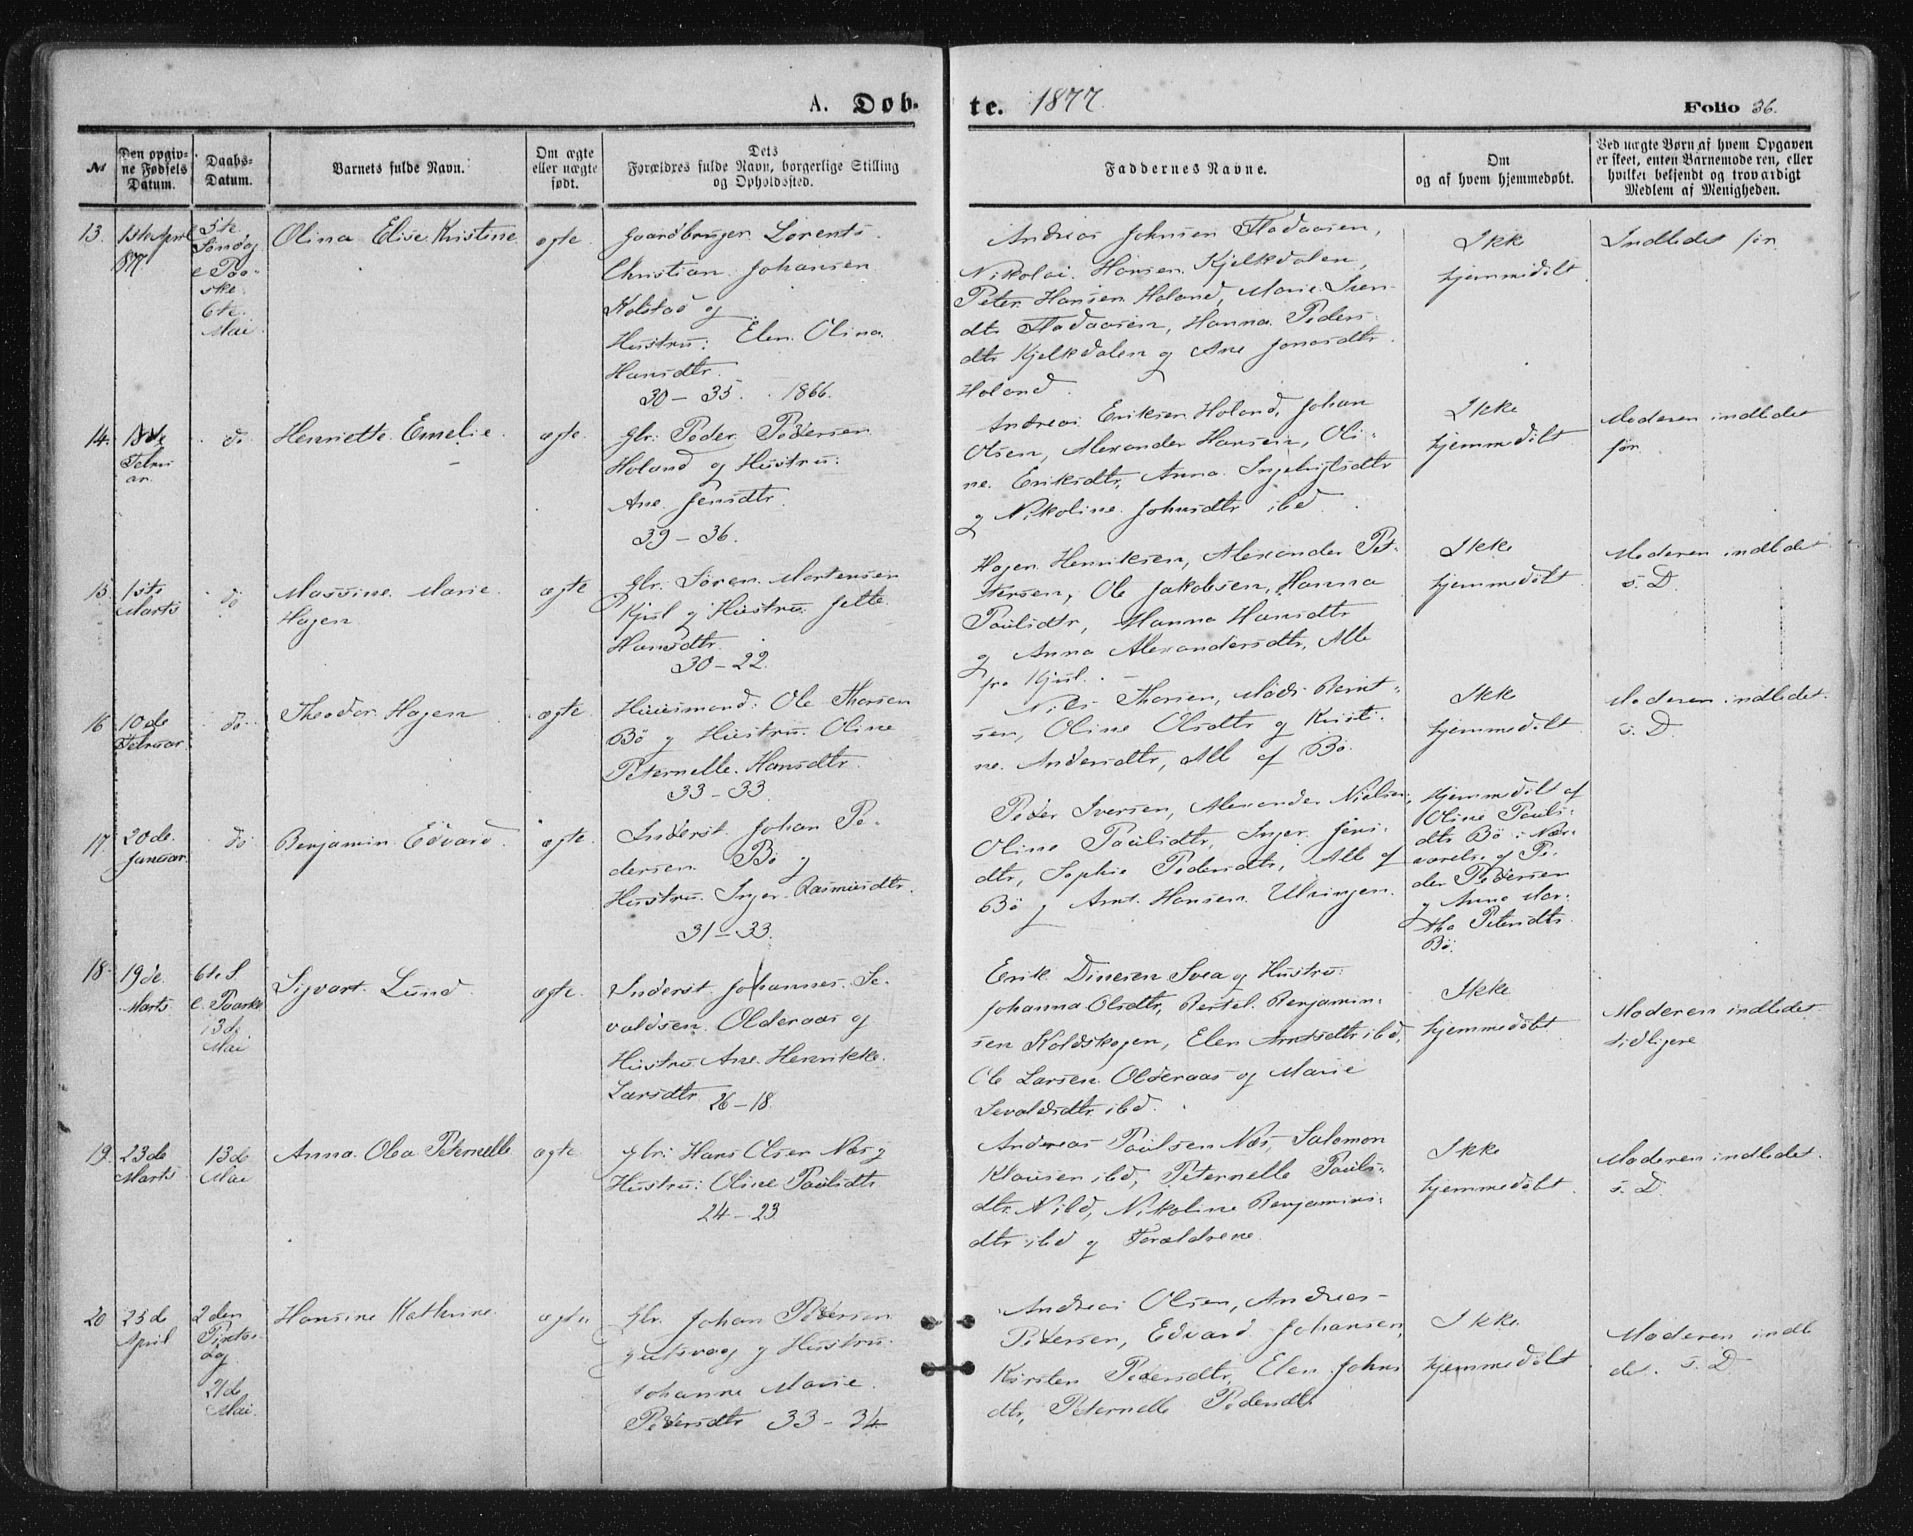 A. Døb-
te. 1877.
Folio 36.
№
Den opgiv-
ne Fødsels
Datum.
Daabs-
Datum.
Barnets fulde Navn.
Om ægte
eller uægte
født.
Dets
Forældres fulde Navn, borgerlige Stilling
og Opholdssted.
Faddernes Navne.
Om
og af hvem hjemmedøbt.
Ved uægte Børn af hvem Opgaven
er skeet, enten Barnemoderen, eller
hvilket bekjendt og troværdigt
Medlem af Menigheden.
13.
1ste April
877
5te
Søndag
e. Paa-
ske
6te
Mai
Olina Elise Kristine
ægte.
Gaardbruger Lorents
Christian Johansen
Kolstad og
Hustru: Elen Olina
Hansdtr.
30 - 35. 1866.
Andreas Johnsen Fladaasen,
Nikolai Hansen Kjelkdalen,
Peter Hansen Holand, Marie Iven-
dtr Fladaasen, Hanna Peders-
dtr Kjelkdalen og Ane Jonasdtr
Holand
Ikke
hjemmedøbt
Indledet før
14.
13de
Febru
ar.
do
Henriette Emelie.
ægte.
Gbr. Peder Pedersen
Holand og Hustru:
Ane Jensdtr.
39 - 36.
Andreas Eriksen Holand, Johan
Olsen, Alexander Hansen, Oli-
ne Eriksdtr, Anna Ingebrigtsdtr
og Nikoline Johnsdtr ibd.
Ikke
hjemmedøbt
Moderen indledet
før
15.
1ste
Marts
do
Massine Marie
Hagen
ægte
Gbr. Søren Mortensen
Kjul og Hustru Jette
Hansdtr.
30 - 22.
Hagen Henriksen, Alexander Pet-
tersen, Ole Jakobsen, Hanna
Paulsdtr, Hanna Hansdtr
og Anna Alexandersdtr, Alle
fra Kjul.
Ikke
hjemmedøbt
Moderen indledet
s. D.
16
10de
Februar.
do
Theodor Hagen
ægte.
Huusmand Ole Thorsen
Bø og Hustru Oline
Peternelle Hansdtr.
33 - 33.
Nils Thorsen, Mads Bernt-
sen, Oline Olsdtr og Kristi-
ne Andersdtr, Alle af Bø.
Ikke
hjemmedøbt
Moderen indledet
s. D.
17.
20de
Januar.
do
Benjamin Edvard.
ægte.
Inderst Johan Pe-
dersen Bø og
Hustru Inger Rasmusdtr.
31 - 33.
Peder Iversen, Alexander Nielsen,
Oline Paulsdtr, Inger Jens-
dtr, Sophie Pedersdtr, Alle af
Bø og Arnt Hansen Ulvingen.
Hjemmedøbt af
Oline Pauls-
dtr Bø i Nær-
værelse af Pe-
der Pedersen
og Anne Mar-
tha Petersdtr
Bø.
18.
19de
Marts
6te S
e. Paaske
13de
Mai
Sigvart Lund
ægte.
Inderst Johannes Se-
valdsen Olderaas og
Hustru Ane Henrikke
Larsdtr 26 - 18.
Erik Dinesen Svea og Hustru:
Johanna Olsdtr, Bertel Benjamin-
sen Koldskogen, Elen Arntsdtr ibd,
Ole Larsen Olderaas og Marie
Sevaldsdtr ibd.
Ikke
hjemmedøbt
Moderen indledet
tidligere
19.
23de
Marts
13de
Mai
Anna Olea Peternelle
ægte.
Gbr: Hans Olsen Næs og
Hustru: Oline Paulsdtr
24 - 23
Andreas Paulsen Næs, Salomon
Klausen ibd, Peternelle Pauls-
dtr ibd, Nikoline Benjamins-
dtr ibd og Forældrene.
Ikke
hjemmedøbt
Moderen indledet
s. D.
20
25de
April
2den
Pintse
dag
21de
Mai
Hansine Kathrine
ægte
Gbr. Johan Pedersen
Hustru:
Johanne Marie
Pedersdtr 33 - 34
Andreas Olsen, Andreas
Pedersen, Edvard Johansen,
Kirsten Pedersdtr, Elen Johns
dtr, Peternelle Pedersdtr
Ikke
hjemmedøbt
Moderen indle
det s. D